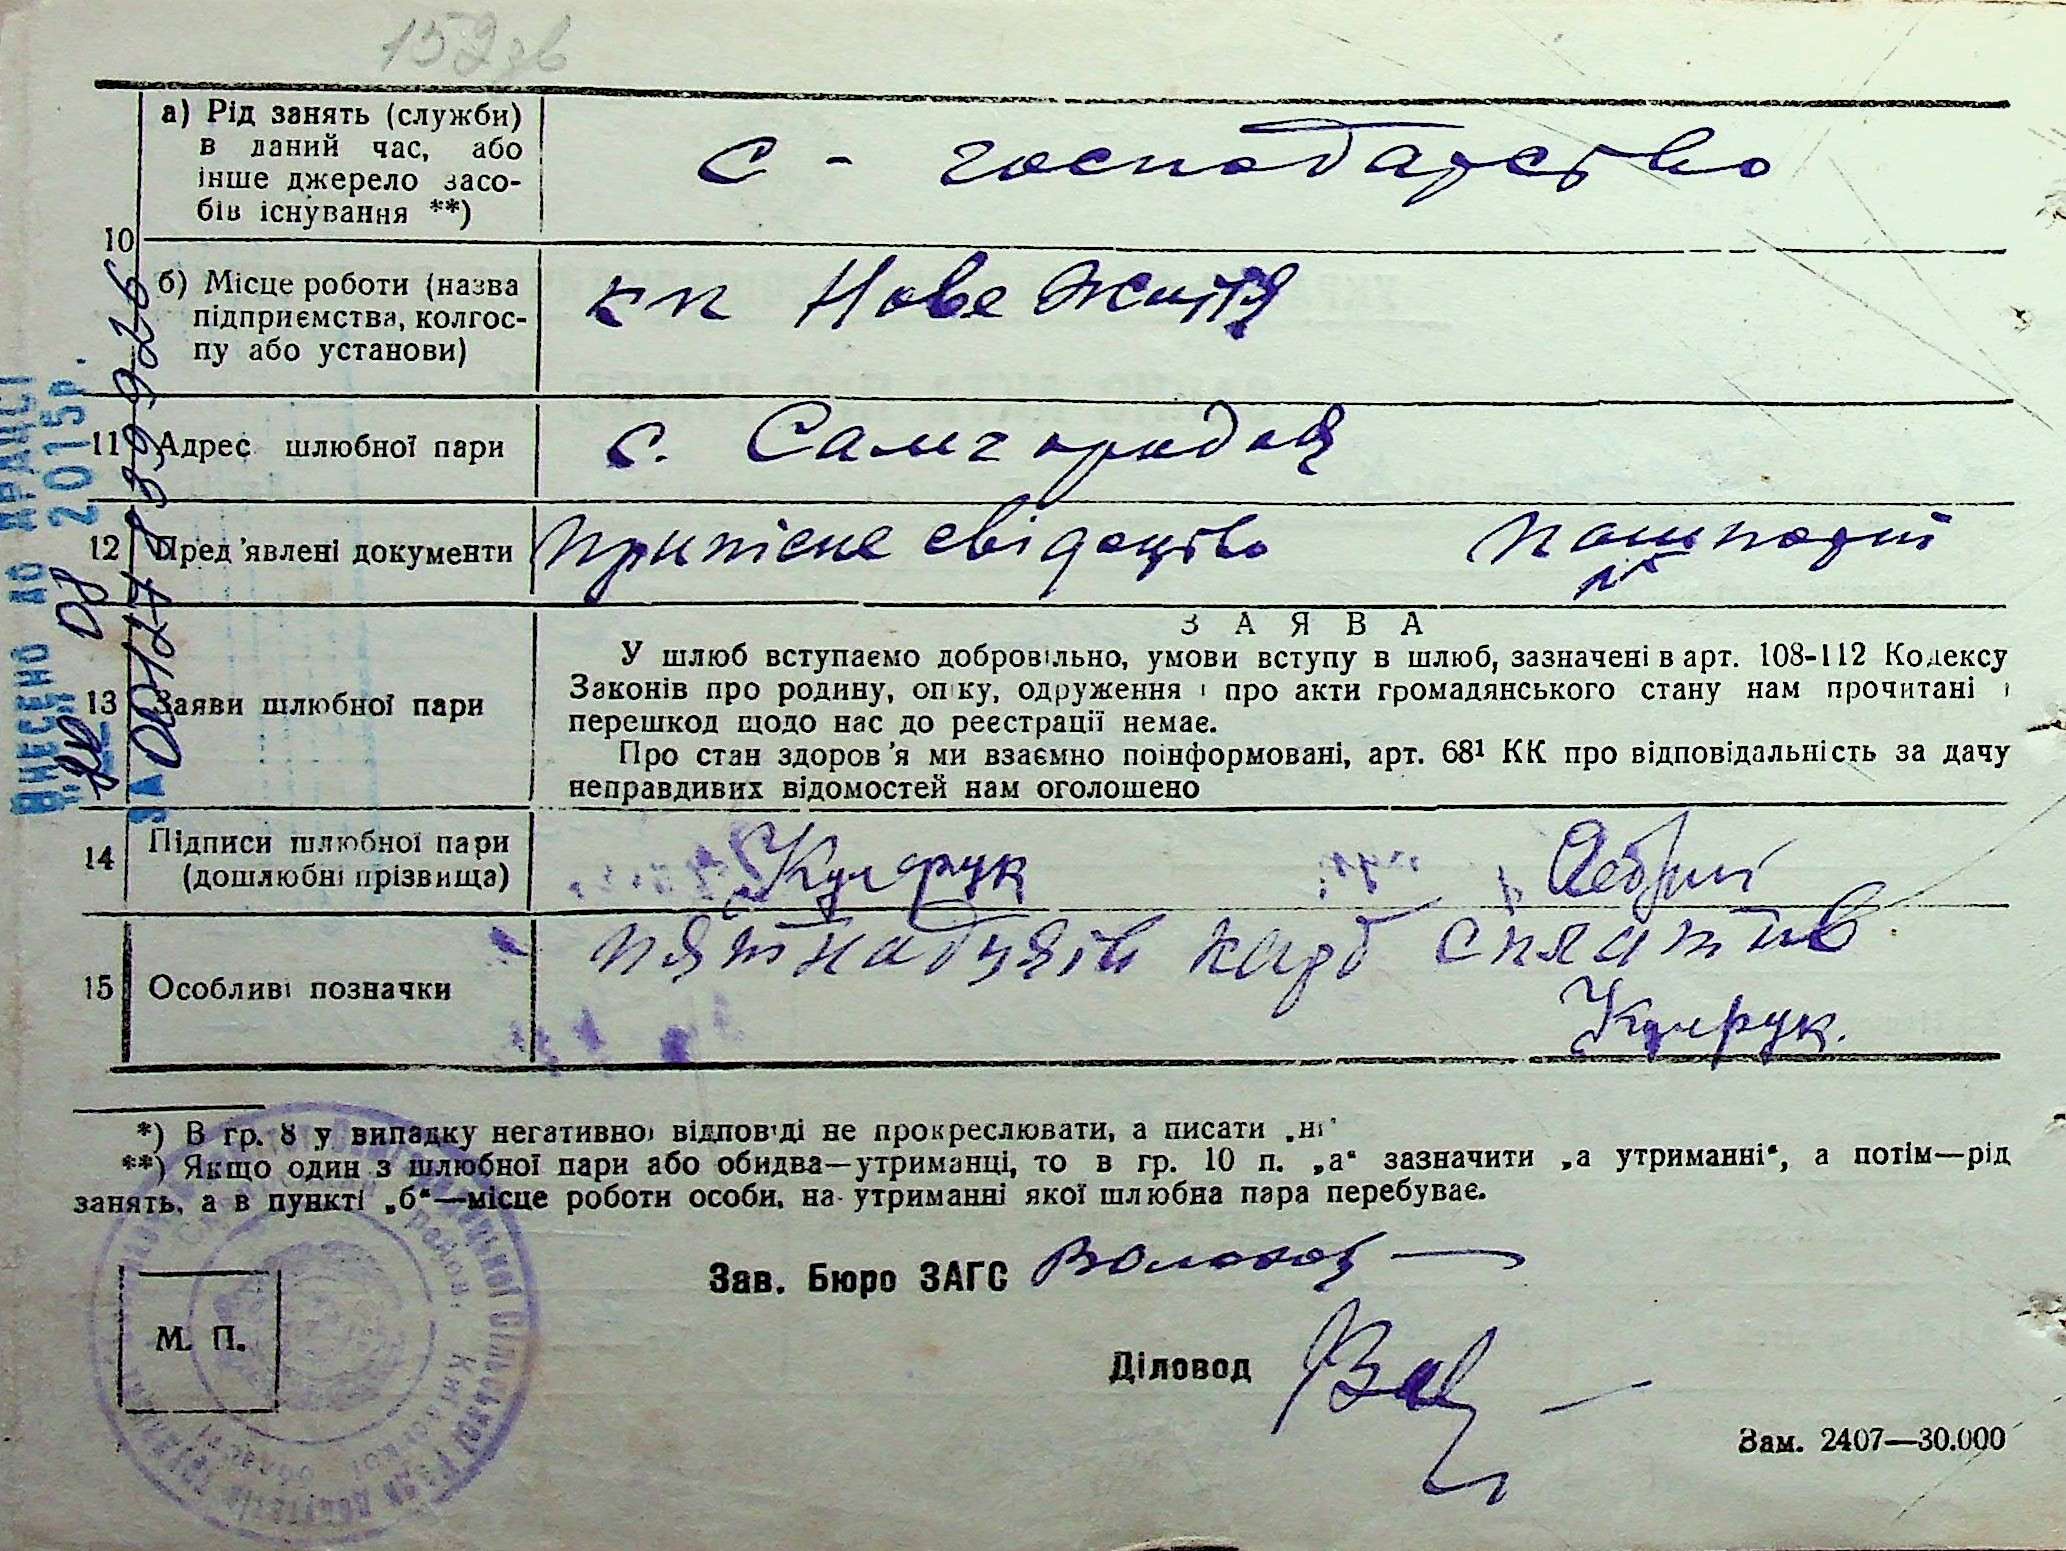 152зв
а) Рід занять (служби)
в даний час, або
інше джерело засо-
бів існування **)
с - господарство
10
б) Місце роботи (назва
підприємства, колгос-
пу або установи)
кп Нове Життя
11 Адрес шлюбної пари
с. Самгородок
12 Пред'явлені документи
приписне свідоцтво
пашпорт
13 Заяви шлюбної пари
ЗАЯВА
У шлюб вступаємо добровільно, умови вступу в шлюб, зазначені в арт. 108-112 Кодексу
Законів про родину, опіку, одруження і про акти громадянського стану нам прочитані і
перешкод щодо нас до реєстрації немає.
Про стан здоров'я ми взаємно поінформовані, арт. 68¹ КК про відповідальність за дачу
неправдивих відомостей нам оголошено
14 Підписи шлюбної пари
(дошлюбні прізвища)
15 Особливі позначки
карб сплатив
*) В гр. 8 у випадку негативної відповіді не прокреслювати, а писати „ні"
**) Якщо один з шлюбної пари або обидва—утриманці, то в гр. 10 п. „а" зазначити „а утриманні", а потім—рід
занять, а в пункті „б"—місце роботи особи, на утриманні якої шлюбна пара перебуває.
Зав. Бюро ЗАГС
Діловод
М. П.
Зам. 2407—30.000
ВНЕСЕНО ДО ДРАЦСІ
08 2015р.
ЗА